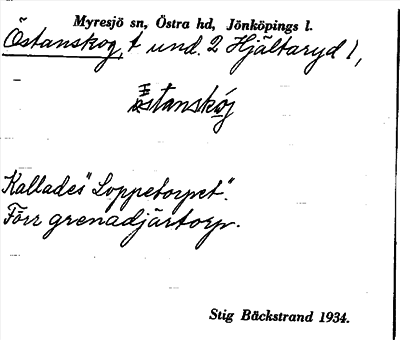 Myresjö sn, Östra hd, Jönköpings l.
Östanskog, t und. 2 Hjältaryd 1,
östanskój
Kallades "Loppetorpet".
Förr grenadjärtorp.
Stig Bäckstrand 1934.